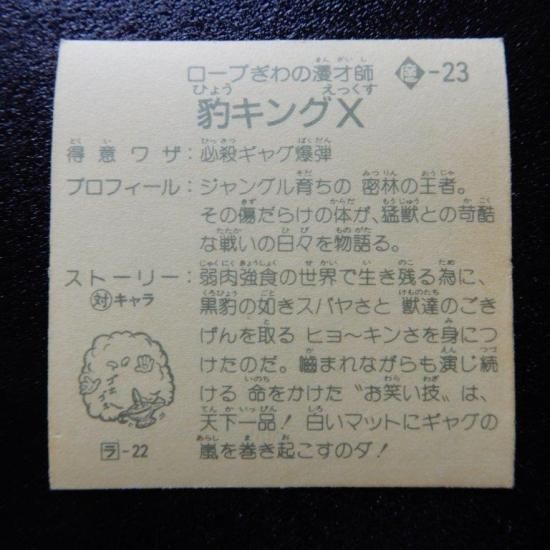 ロープぎわの漫才師 -23
豹キングX
得意ワザ：必殺ギャグ爆弾
プロフィール：ジャングル育ちの 密林の王者。
その傷だらけの体が、猛獣との苛酷
な戦いの日々を物語る。
ストーリー：弱肉強食の世界で生き残る為に、
対キャラ 黒豹の如きスバヤさと 獣達のごき
げんを取る ヒョ〜キンさを身につ
けたのだ。嚙まれながらも演じ続
ける 命をかけた〝お笑い技〟は、
天下一品！ 白いマットにギャグの
嵐を巻き起こすのダ！
ラ-22